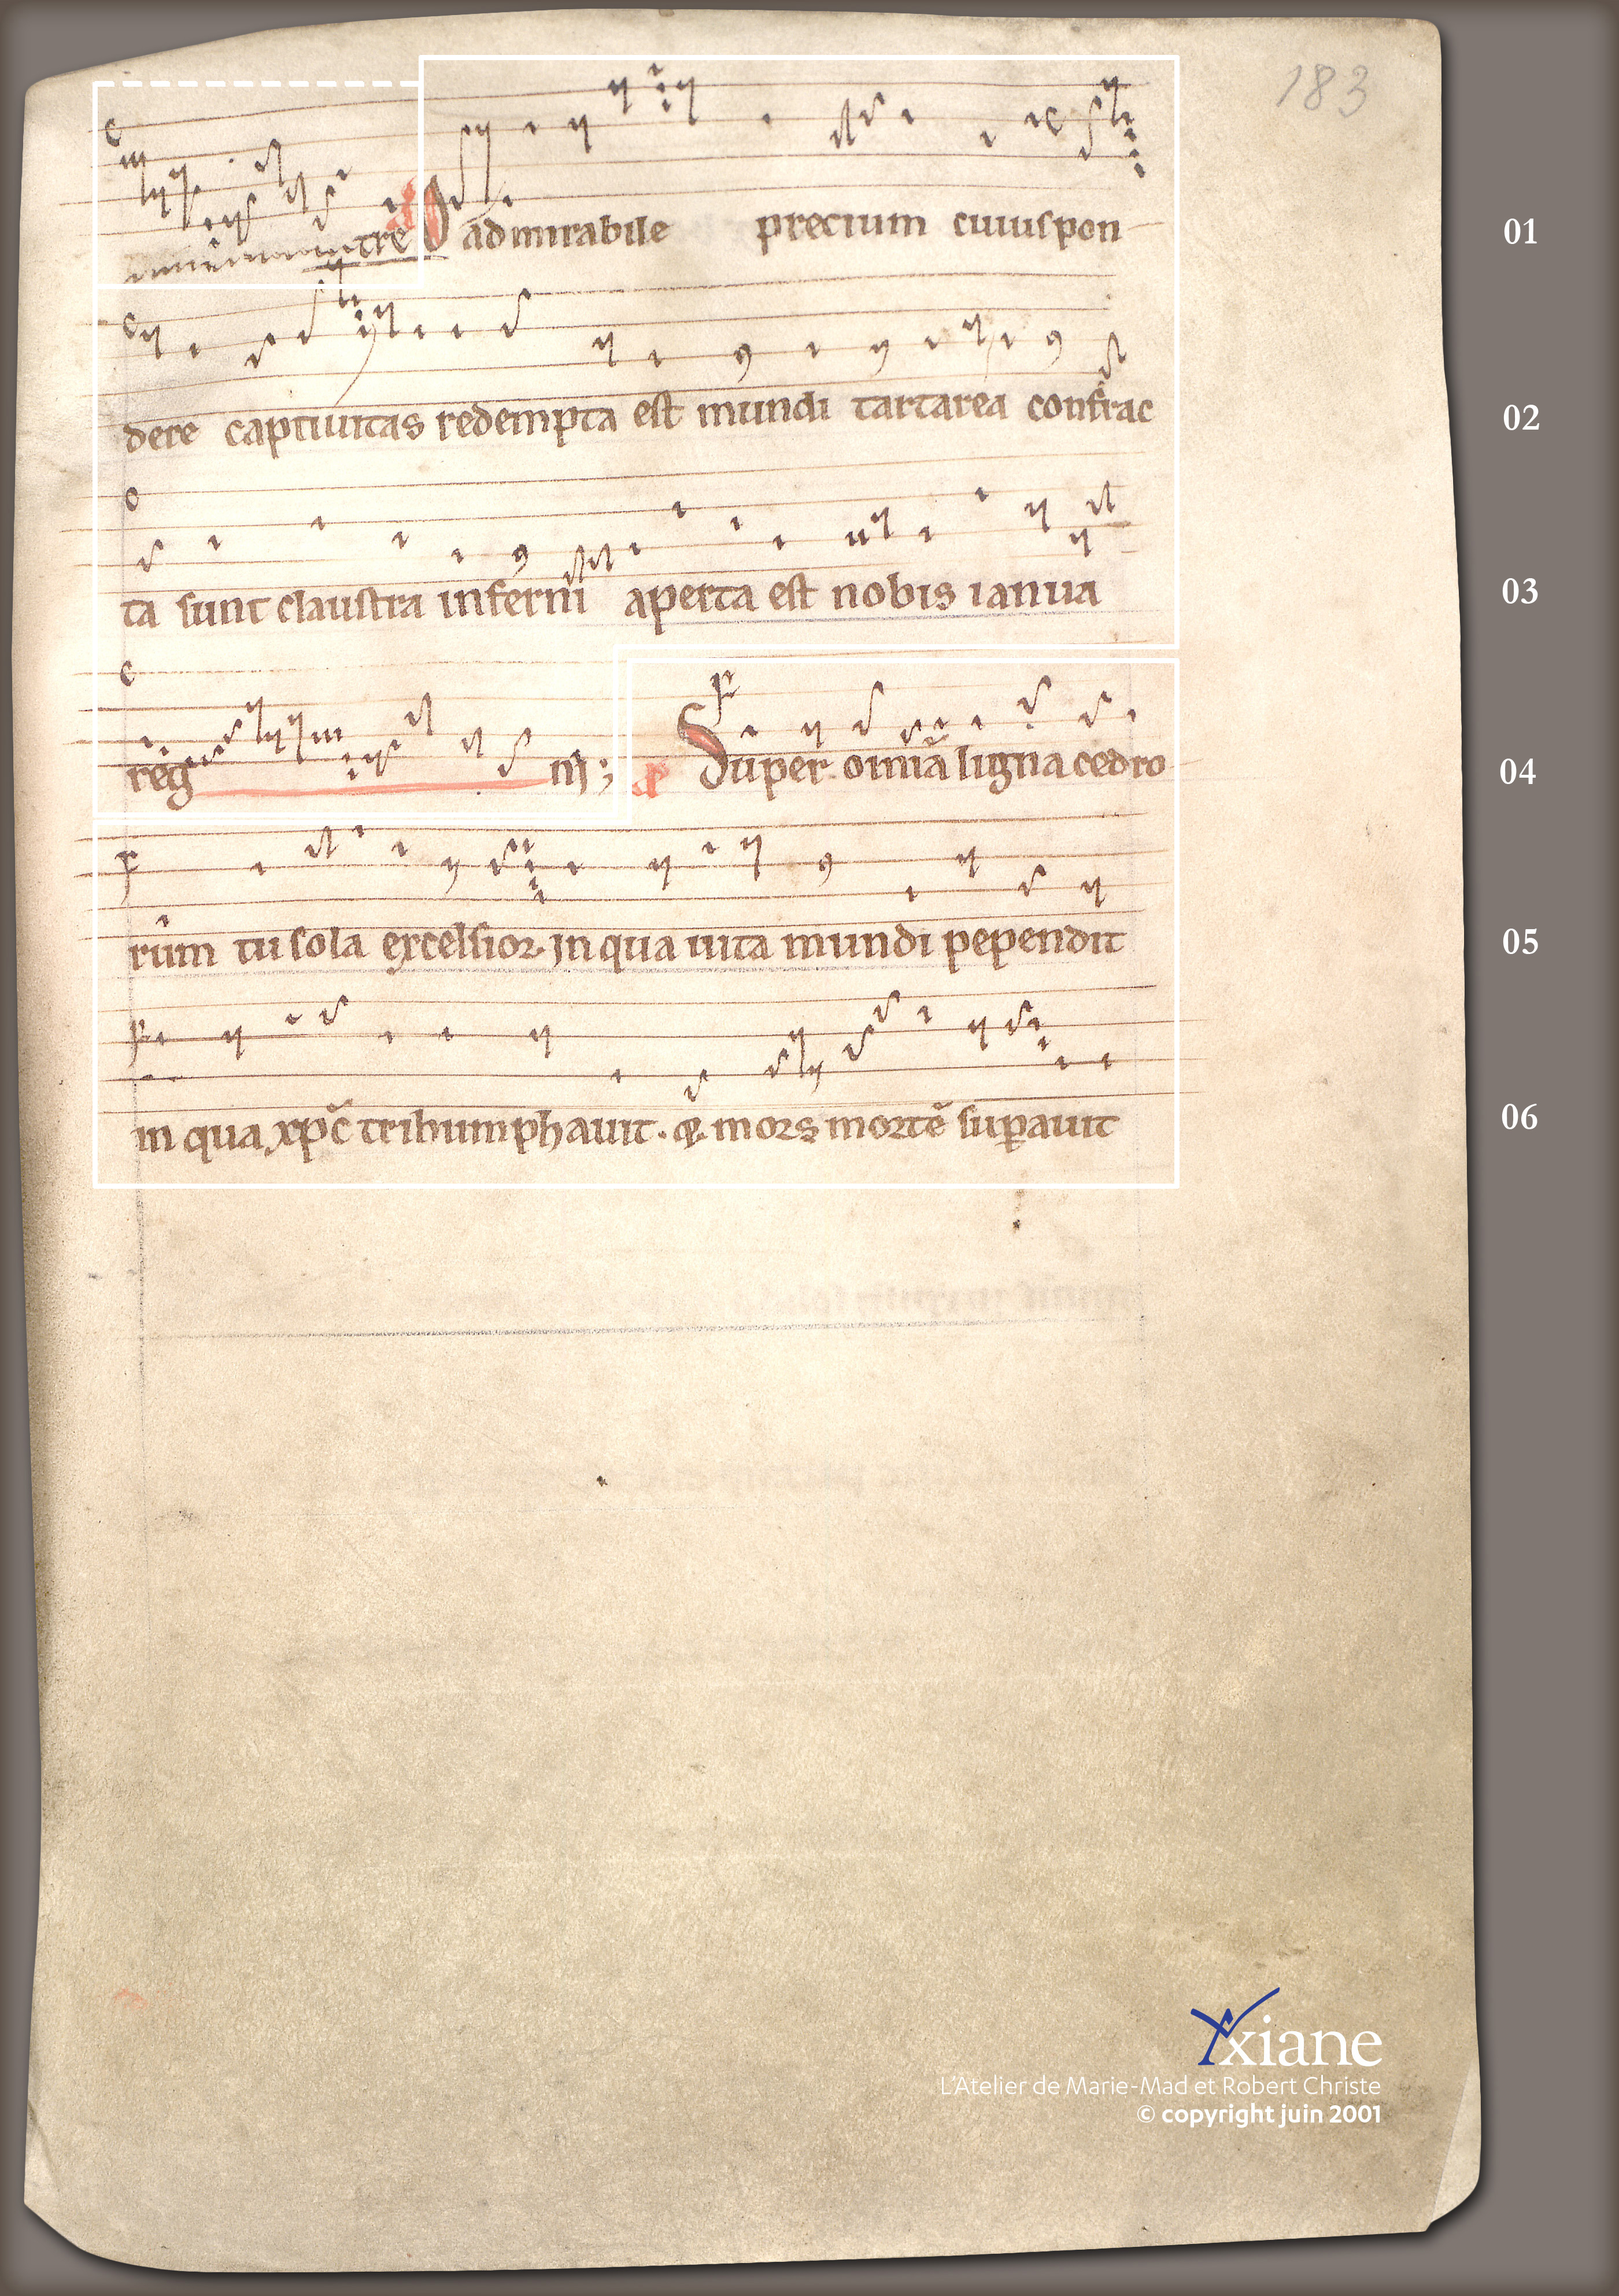 183
tre O admirabile precium cuius pon 01
dere captiuitas redempta est mundi tartarea confrac 02
ta sunt claustra inferni aperta est nobis ianua 03
reg ni; Super omīa ligna cedro 04
rum tu sola excelsior. In qua uita mundi pependit 05
in qua xpc̄ trihumphauit. & mors mortē suꝑauit 06
xiane
L'Atelier de Marie-Mad et Robert Christe
© copyright juin 2001